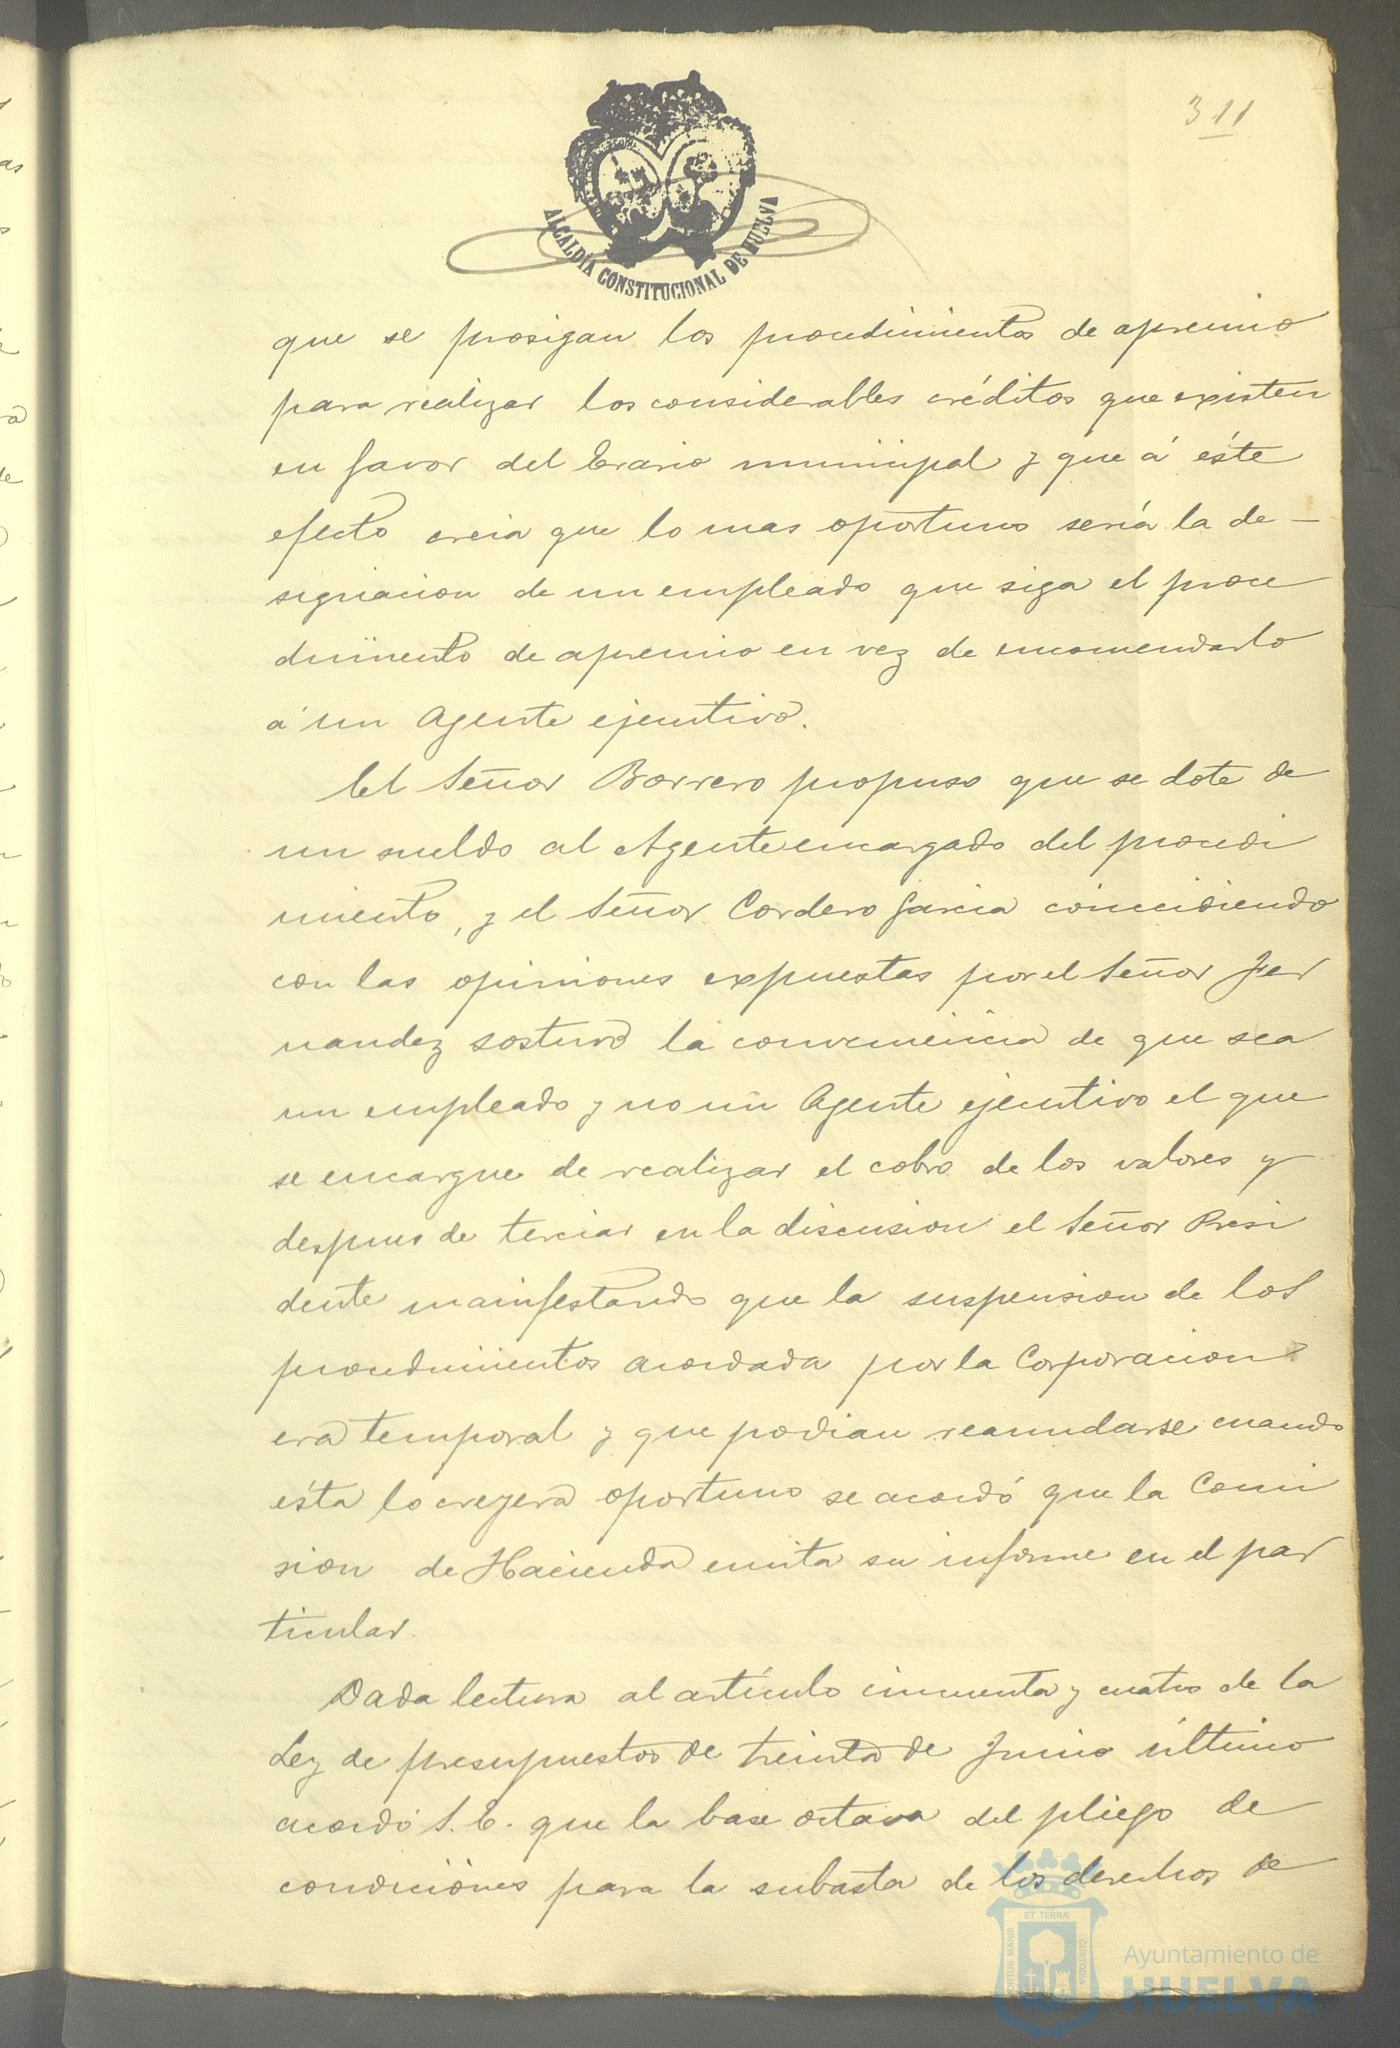 311
ALCALDÍA CONSTITUCIONAL DE HUELVA
que se prosigan los procedimientos de apremio
para realizar los considerables créditos que existen
en favor del Erario municipal y que á éste
efecto creia que lo mas oportuno sería la de-
signacion de un empleado que siga el proce
dimiento de apremio en vez de encomendarlo
á un Agente ejecutivo.
El Señor Borrero propuso que se dote de
un sueldo al Agente encargado del procedi
miento, y el Señor Cordero Garcia coincidiendo
con las opiniones expuestas por el Señor Fer
nandez sostuvo la conveniencia de que sea
un empleado y no un Agente ejecutivo el que
se encargue de realizar el cobro de los valores y
despues de terciar en la discusion el Señor Presi
dente manifestando que la suspension de los
procedimientos acordada por la Corporacion
era temporal y que podian reanudarse cuando
ésta lo creyera oportuno se acordó que la Comi
sion de Hacienda emita su informe en el par
ticular.
Dada lectura al artículo cincuenta y cuatro de la
Ley de presupuestos de treinta de Junio último
acordó S. E. que la base octava del pliego de
condiciones para la subasta de los derechos de
PORTUS MARIS ET TERRÆ CUSTODIA
Ayuntamiento de
HUELVA